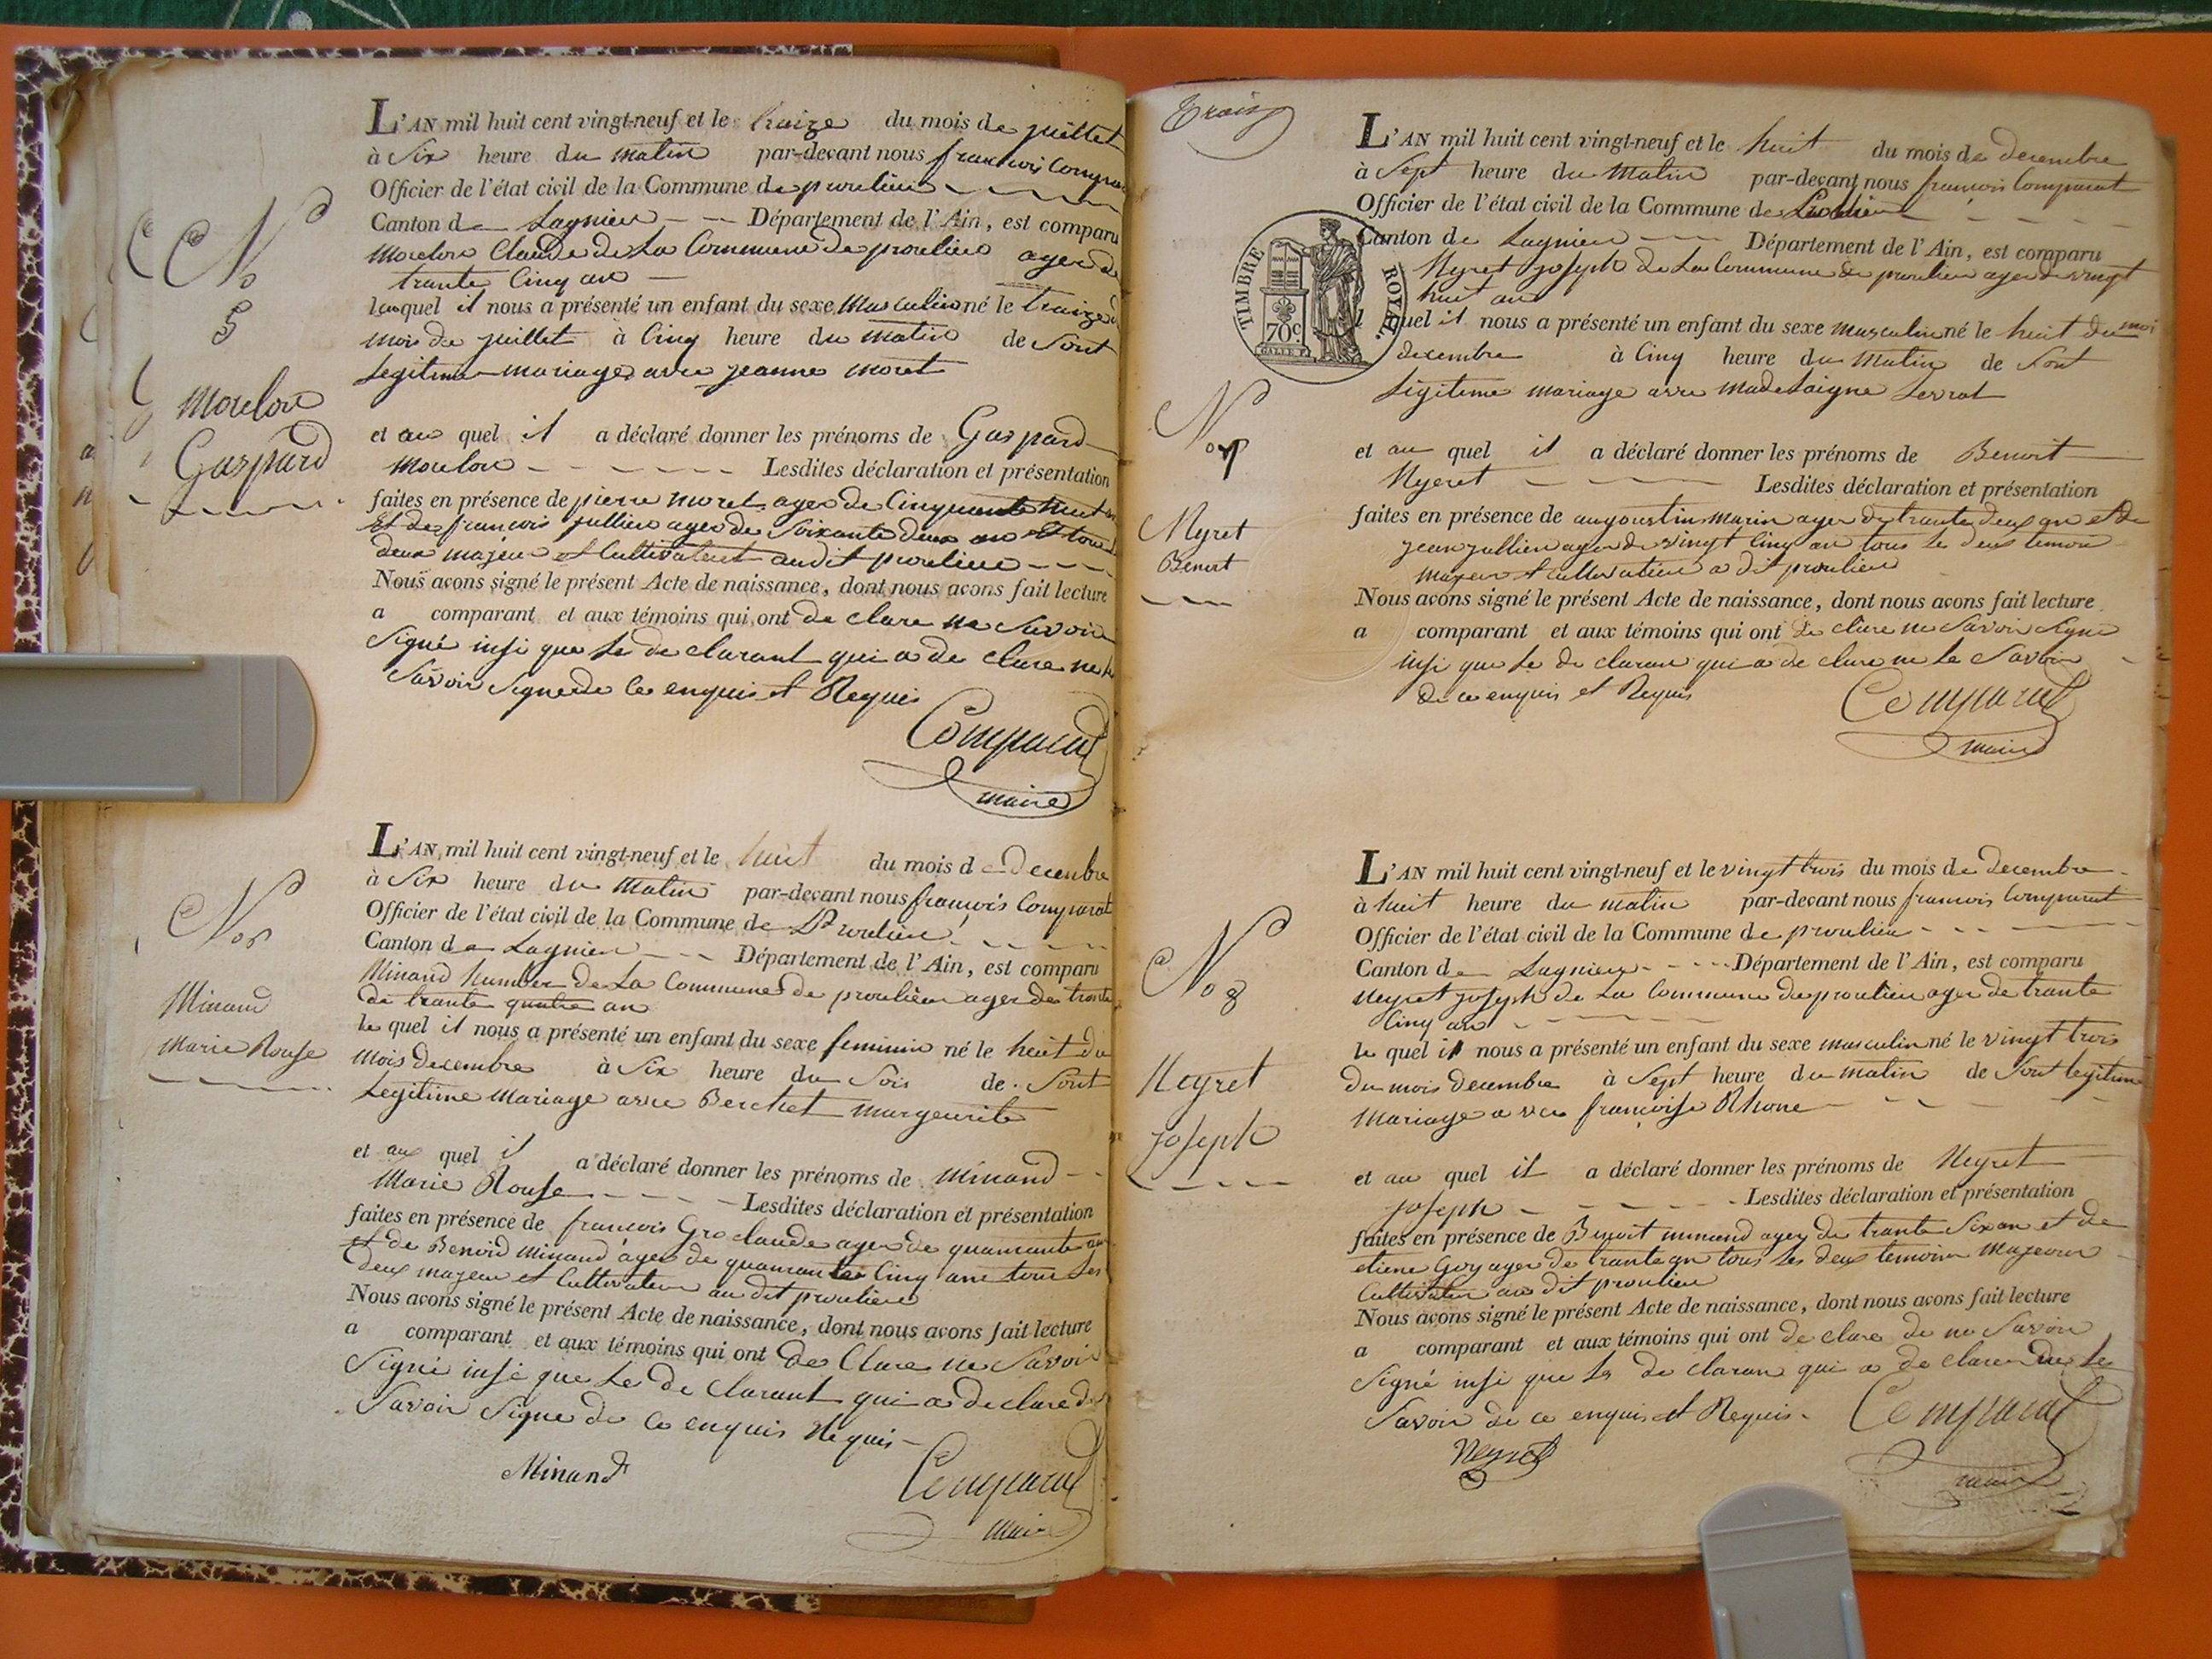 N°
5
Morelon
Gaspard
L'AN mil huit cent vingt-neuf et le traize du mois de juillet
à Six heure du matin par-devant nous francois Comparat
Officier de l'état civil de la Commune de proulieu
Canton de Lagnieu Département de l'Ain, est comparu
Morelon Claude de La Commune de proulieu ager de
trante Cinq an
lequel il nous a présenté un enfant du sexe masculin né le traize du
mois de juillet à Cinq heure du matin de Sont
Legitime mariage avec jeanne moret
et au quel il a déclaré donner les prénoms de Gaspard
Morelon Lesdites déclaration et présentation
faites en présence de pierre moret ager de Cinquante huit an
Et de francois jullien ager de Soixante deux an Et tous
deux majeur et Cultivateur audit proulieu
Nous avons signé le présent Acte de naissance, dont nous avons fait lecture
a comparant et aux témoins qui ont de clare ne Savoir
Signé insi que Le de clarant qui a de clare ne le
Savoir Signe de Ce enquis et Requis
Comparat
maire
N° 6
Minand
Marie Rouse
L'AN mil huit cent vingt-neuf et le huit du mois de decembre
à Six heure du Matin par-devant nous francois Comparat
Officier de l'état civil de la Commune de Proulieu
Canton de Lagnieu Département de l'Ain, est comparu
Minand humber de La Commune de proulieu ager de trante
de trante quatre an
le quel il nous a présenté un enfant du sexe feminin né le huit du
mois decembre à Six heure du Soir de Sont
Legitime Mariage avec Berchet margeurite
et au quel il a déclaré donner les prénoms de Minand
Marie Rouse Lesdites déclaration et présentation
faites en présence de francois Gro claude ager de quarante an
et de Benoid Minand ager de quarante Cinq ans tous Les
deux majeur et Cultivateur au dit proulieu
Nous avons signé le présent Acte de naissance, dont nous avons fait lecture
a comparant et aux témoins qui ont de Clare ne Savoir
Signé insi que Le de Clarant qui a de clare de
Savoir Signe de Ce enquis Requis
Minand
Comparat
maire
Trois
TIMBRE ROYAL
70c
N° 7
Neyret
Benoit
L'AN mil huit cent vingt-neuf et le huit du mois de decembre
à Sept heure du Matin par-devant nous francois Comparat
Officier de l'état civil de la Commune de Proulieu
Canton de Lagnieu Département de l'Ain, est comparu
Neyret joseph de La Commune de proulieu ager de vingt
huit an
l quel il nous a présenté un enfant du sexe masculin né le huit du moi
decembre à Cinq heure du Matin de Sont
Legitime mariage avec madelaigne Serrat
et au quel il a déclaré donner les prénoms de Benoit
Neyret Lesdites déclaration et présentation
faites en présence de augoustin Marin ager de trante deux an et de
jean jullien ager de vingt Cinq an tous Les deux temoin
majeur et cultivateur a dit proulieu
Nous avons signé le présent Acte de naissance, dont nous avons fait lecture
a comparant et aux témoins qui ont de clare ne Savoir Signe
insi que Le de claran qui a de clare ne Le Savoir
de ce enquis et Requis
Comparat
maire
N° 8
Neyret
joseph
L'AN mil huit cent vingt-neuf et le vingt trois du mois de decembre
à huit heure du matin par-devant nous francois Comparat
Officier de l'état civil de la Commune de proulieu
Canton de Lagnieu Département de l'Ain, est comparu
Neyret joseph de La Commune de proulieu ager de trante
Cinq an
le quel il nous a présenté un enfant du sexe masculin né le vingt trois
du mois decembre à Sept heure du matin de Sont legitime
Mariage a vec françoise Rhone
et au quel il a déclaré donner les prénoms de Neyret
joseph Lesdites déclaration et présentation
faites en présence de Benoit minand ager de trante Six an et de
etiene Goy ager de trante an tous Les deux temoin majeur
Cultivateur au dit proulieu
Nous avons signé le présent Acte de naissance, dont nous avons fait lecture
a comparant et aux témoins qui ont de clare de ne Savoir
Signé insi que Le de claran qui a de clare de Le
Savoir de ce enquis et Requis
Neyret
Comparat
maire